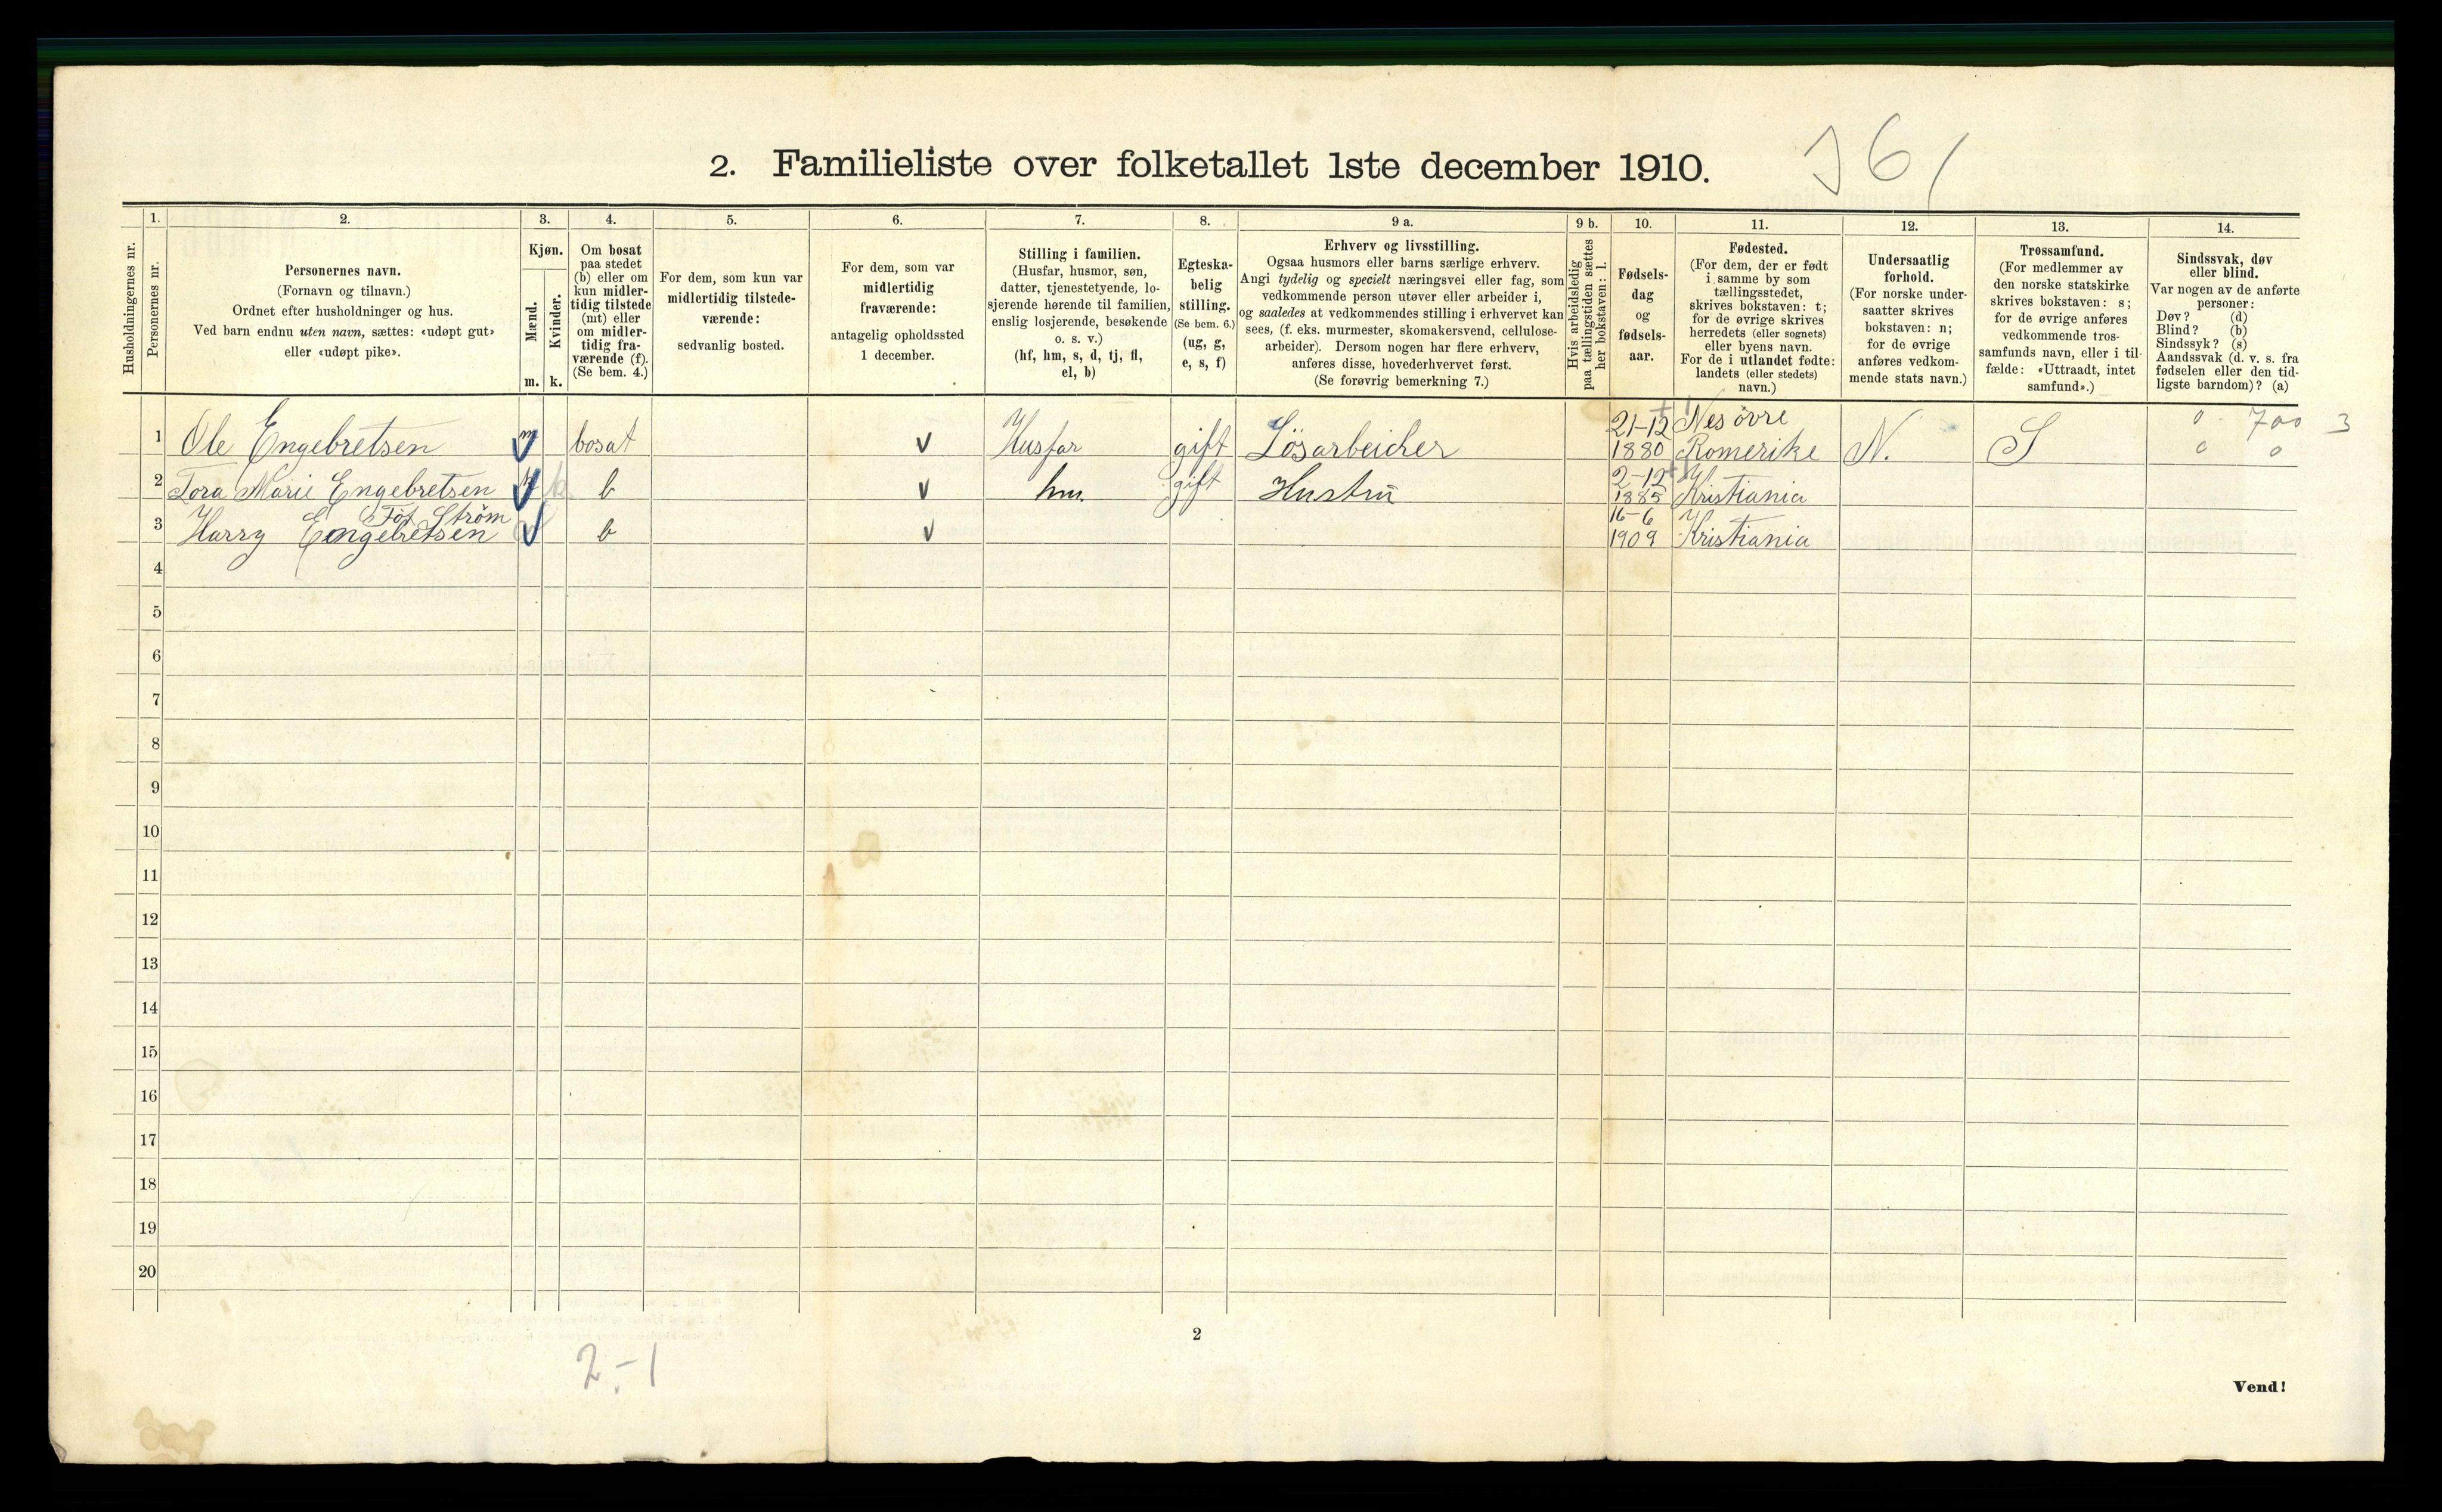 2. Familieliste over folketallet 1ste december 1910.
Husholdningernes nr.
1.
Personernes nr.
2.
Personernes navn.
(Fornavn og tilnavn.)
Ordnet efter husholdninger og hus.
Ved barn endnu uten navn, sættes: «udøpt gut»
eller «udøpt pike».
3.
Kjøn.
Mænd.
Kvinder.
m. k.
4.
Om bosat
paa stedet
(b) eller om
kun midler-
tidig tilstede
(mt) eller
om midler-
tidig fra-
værende (f).
(Se bem. 4.)
5.
For dem, som kun var
midlertidig tilstede-
værende:
sedvanlig bosted.
6.
For dem, som var
midlertidig
fraværende:
antagelig opholdssted
1 december.
7.
Stilling i familien.
(Husfar, husmor, søn,
datter, tjenestetyende, lo-
sjerende hørende til familien,
enslig losjerende, besøkende
o. s. v.)
(hf, hm, s, d, tj, fl,
el, b)
8.
Egteska-
belig
stilling.
(Se bem. 6.)
(ug, g,
e, s, f)
9 a.
Erhverv og livsstilling.
Ogsaa husmors eller barns særlige erhverv.
Angi tydelig og specielt næringsvei eller fag, som
vedkommende person utøver eller arbeider i,
og saaledes at vedkommendes stilling i erhvervet kan
sees, (f. eks. murmester, skomakersvend, cellulose-
arbeider). Dersom nogen har flere erhverv,
anføres disse, hovederhvervet først.
(Se forøvrig bemerkning 7.)
9 b.
Hvis arbeidsledig
paa tællingstiden sættes
her bokstaven: l.
10.
Fødsels-
dag
og
fødsels-
aar.
11.
Fødested.
(For dem, der er født
i samme by som
tællingsstedet,
skrives bokstaven: t;
for de øvrige skrives
herredets (eller sognets)
eller byens navn.
For de i utlandet fødte:
landets (eller stedets)
navn.)
12.
Undersaatlig
forhold.
(For norske under-
saatter skrives
bokstaven: n;
for de øvrige
anføres vedkom-
mende stats navn.)
13.
Trossamfund.
(For medlemmer av
den norske statskirke
skrives bokstaven: s;
for de øvrige anføres
vedkommende tros-
samfunds navn, eller i til-
fælde: «Uttraadt, intet
samfund».)
14.
Sindssvak, døv
eller blind.
Var nogen av de anførte
personer:
Døv? (d)
Blind? (b)
Sindssyk? (s)
Aandssvak (d. v. s. fra
fødselen eller den tid-
ligste barndom)? (a)
21-12 Nes övre 0 700 3
1 Ole Engebretsen m bosat v Husfar gift Lösarbeider 1880 Romerike N. S 0 0
2-12
2 Tora Marie Engebretsen k b v hm. gift Hustru 1885 Kristiania
Föt Ström 16-6
3 Harry Engebretsen b v 1909 Kristiania
4
5
6
7
8
9
10
11
12
13
14
15
16
17
18
19
20
2
2.-1
Vend!